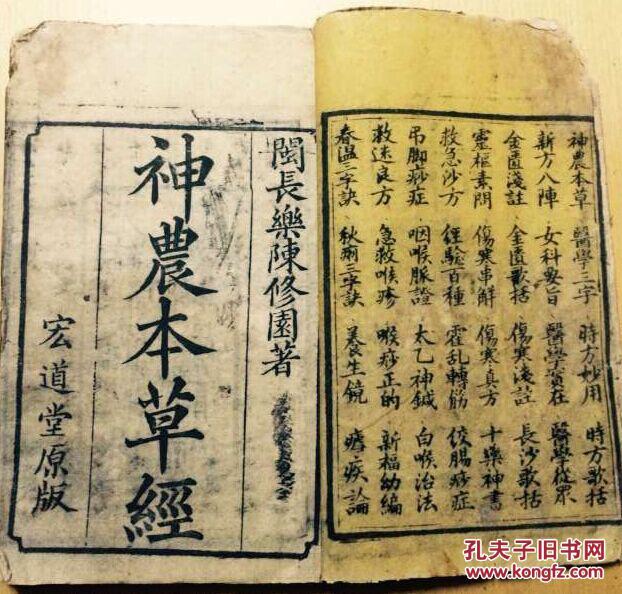 神農本草 醫學三字 時方妙用 時方歌括
新方八陣 女科要旨 醫學實在 醫學從眾
金匱淺註 金匱歌括 傷寒淺註 長沙歌括
靈樞素問 傷寒串解 傷寒真方 十藥神書
救急沙方 經驗百種 霍乱轉筋 絞腸痧症
吊脚痧症 咽喉脈證 太乙神鍼 白喉治法
救迷良方 急救喉疹 喉痧正的 新福幼編
春温三字訣 秋痢三字訣 養生鏡 瘧疾論
閩長樂陳修園著
神農本草經
宏道堂原版
孔夫子旧书网
www.kongfz.com